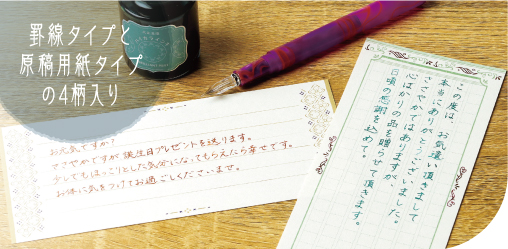 罫線タイプと
原稿用紙タイプ
の4柄入り
お元気ですか?
ささやかですが誕生日プレゼントを送ります。
少しでもほっこりとした気分になってもらえたら幸せです。
お体に気をつけてお過ごしくださいませ。
この度は、お気遣い頂きまして
本当にありがとうございました。
ささやかではありますが、
心ばかりの品を贈らせて頂きます。
日頃の感謝を込めて。